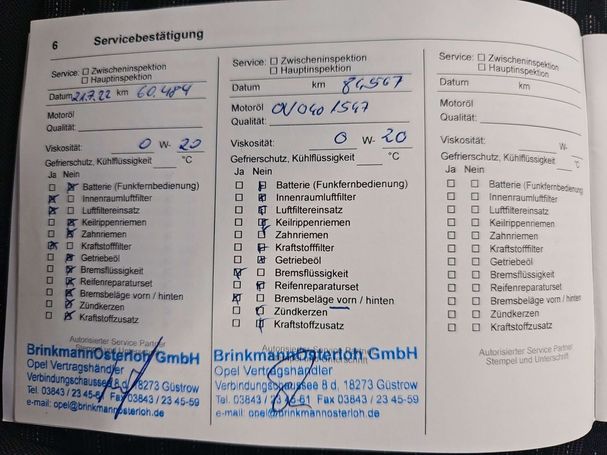 6 Servicebestätigung
Service: ☐ Zwischeninspektion
☐ Hauptinspektion
Datum 21.7.22 km 60.484
Motoröl
Qualität:
Viskosität: 0 W- 20
Gefrierschutz, Kühlflüssigkeit °C
Ja Nein
Batterie (Funkfernbedienung)
Innenraumluftfilter
Luftfiltereinsatz
Keilrippenriemen
Zahnriemen
Kraftstofffilter
Getriebeöl
Bremsflüssigkeit
Reifenreparaturset
Bremsbeläge vorn / hinten
Zündkerzen
Kraftstoffzusatz
Autorisierter Service Partner
BrinkmannOsterloh GmbH
Opel Vertragshändler
Verbindungschaussee 8 d, 18273 Güstrow
Tel. 03843 / 23 45-61 Fax 03843 / 23 45-59
e-mail: opel@brinkmannosterloh.de
Service: ☐ Zwischeninspektion
☐ Hauptinspektion
Datum km 84547
Motoröl
Qualität:
Viskosität: 0 W- 20
Gefrierschutz, Kühlflüssigkeit °C
Ja Nein
Batterie (Funkfernbedienung)
Innenraumluftfilter
Luftfiltereinsatz
Keilrippenriemen
Zahnriemen
Kraftstofffilter
Getriebeöl
Bremsflüssigkeit
Reifenreparaturset
Bremsbeläge vorn / hinten
Zündkerzen
Kraftstoffzusatz
Autorisierter Service Partner
BrinkmannOsterloh GmbH
Opel Vertragshändler
Verbindungschaussee 8 d, 18273 Güstrow
Tel. 03843 / 23 45-61 Fax 03843 / 23 45-59
e-mail: opel@brinkmannosterloh.de
Service: ☐ Zwischeninspektion
☐ Hauptinspektion
Datum km
Motoröl
Qualität:
Viskosität: W-
Gefrierschutz, Kühlflüssigkeit °C
Ja Nein
Batterie (Funkfernbedienung)
Innenraumluftfilter
Luftfiltereinsatz
Keilrippenriemen
Zahnriemen
Kraftstofffilter
Getriebeöl
Bremsflüssigkeit
Reifenreparaturset
Bremsbeläge vorn / hinten
Zündkerzen
Kraftstoffzusatz
Autorisierter Service Partner
Stempel und Unterschrift